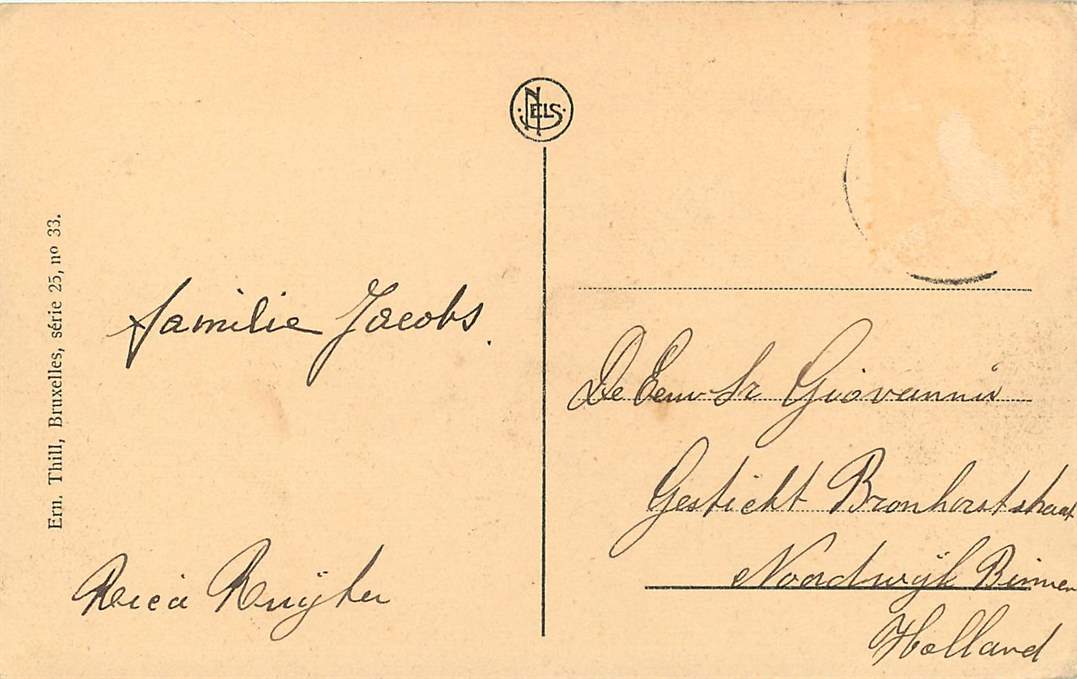 NELS
Ern. Thill, Bruxelles, série 25, nº 33.
familie Jacobs.
Ruyter
De Eerw Sr Giovanni
Gesticht Bronhorststraat
Noordwijk Binnen
Holland